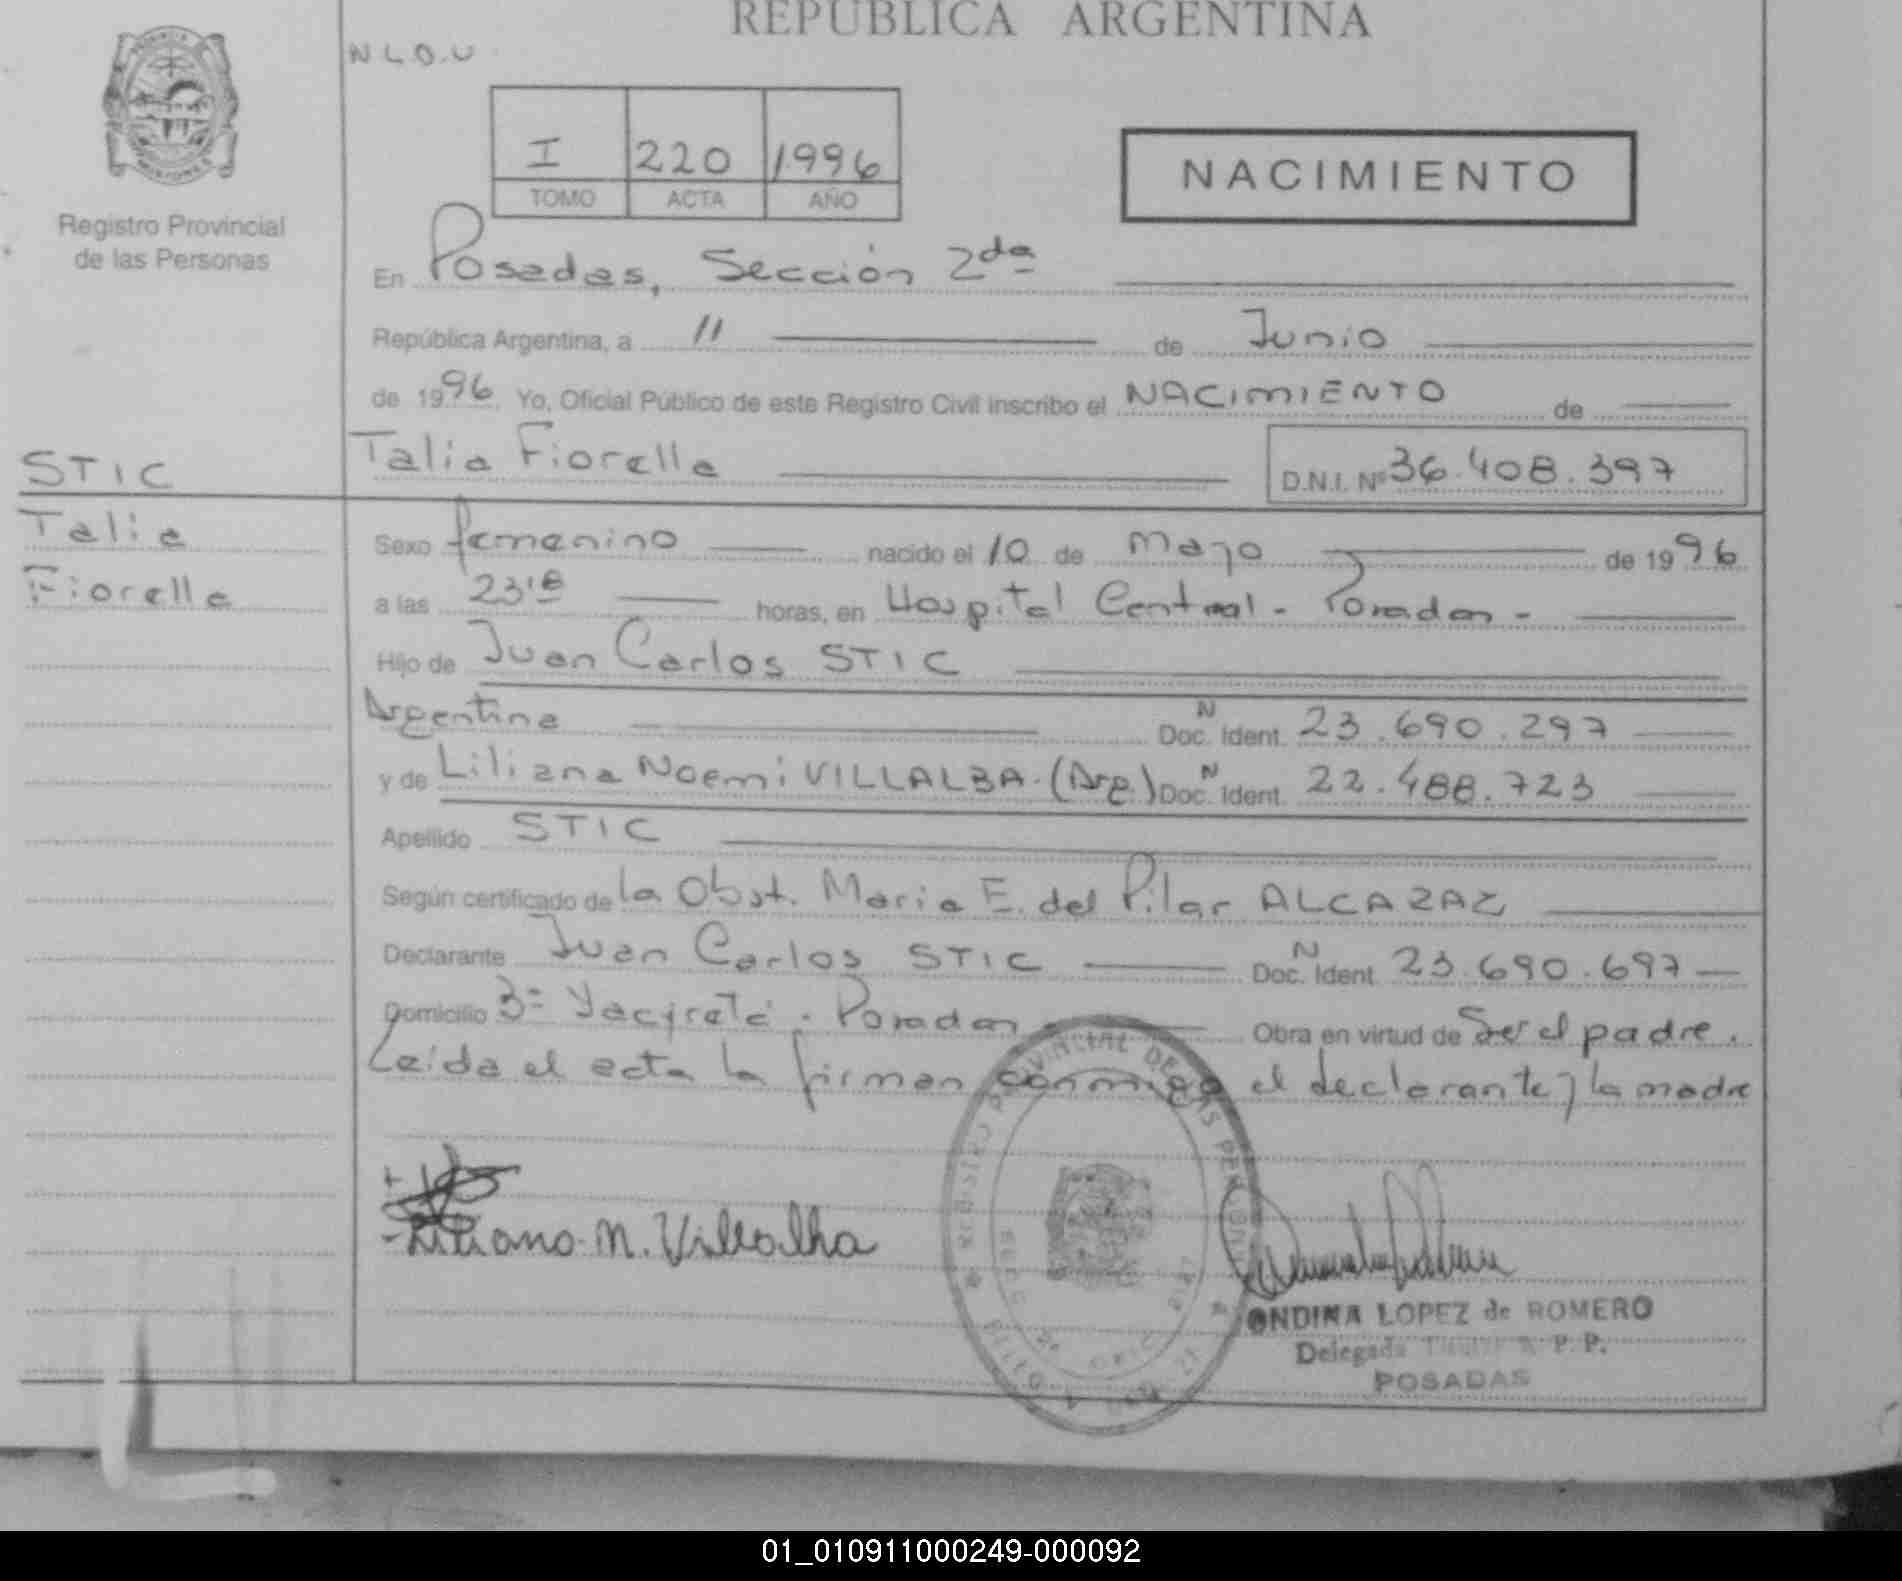 REPUBLICA ARGENTINA
N L O U
I 220 1996
TOMO ACTA AÑO
NACIMIENTO
Registro Provincial
de las Personas
En Posadas, Sección 2da
República Argentina, a 11 de Junio
de 1996. Yo, Oficial Público de este Registro Civil inscribo el NACIMIENTO de
STIC
Talia Fiorella D.N.I. Nº 36.408.397
Talia
Fiorella
Sexo femenino nacido el 10 de mayo de 1996
a las 23,18 horas, en Hospital Central - Posadas -
Hijo de Juan Carlos STIC
Argentina N Doc. Ident. 23.690.297
y de Liliana Noemi VILLALBA. (Arg.) N Doc. Ident. 22.488.723
Apellido STIC
Según certificado de la Obst. Maria E. del Pilar ALCAZAZ
Declarante Juan Carlos STIC N Doc. Ident. 23.690.697
Domicilio 3= Yacyretá - Posadas - Obra en virtud de Ser el padre.
Leída el acta la firman conmigo el declarante y la madre
Liliana N. Villalba
REGISTRO PROVINCIAL DE LAS PERSONAS
ONDINA LOPEZ de ROMERO
Delegada Titular R. P. P.
POSADAS
01_010911000249-000092